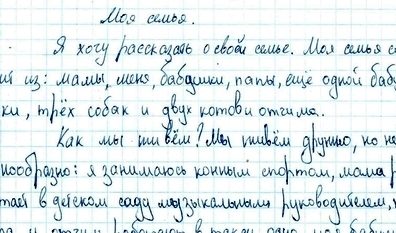 Моя семья.
Я хочу рассказать о своей семье. Моя семья с
ит из: мамы, меня, бабушки, папы, ещё одной бабу
ки, трёх собак и двух котов и отчима.
Как мы живём? Мы живём дружно, но не
нообразно: я занимаюсь конным спортом, мама р
тает в детском саду музыкальным руководителем,